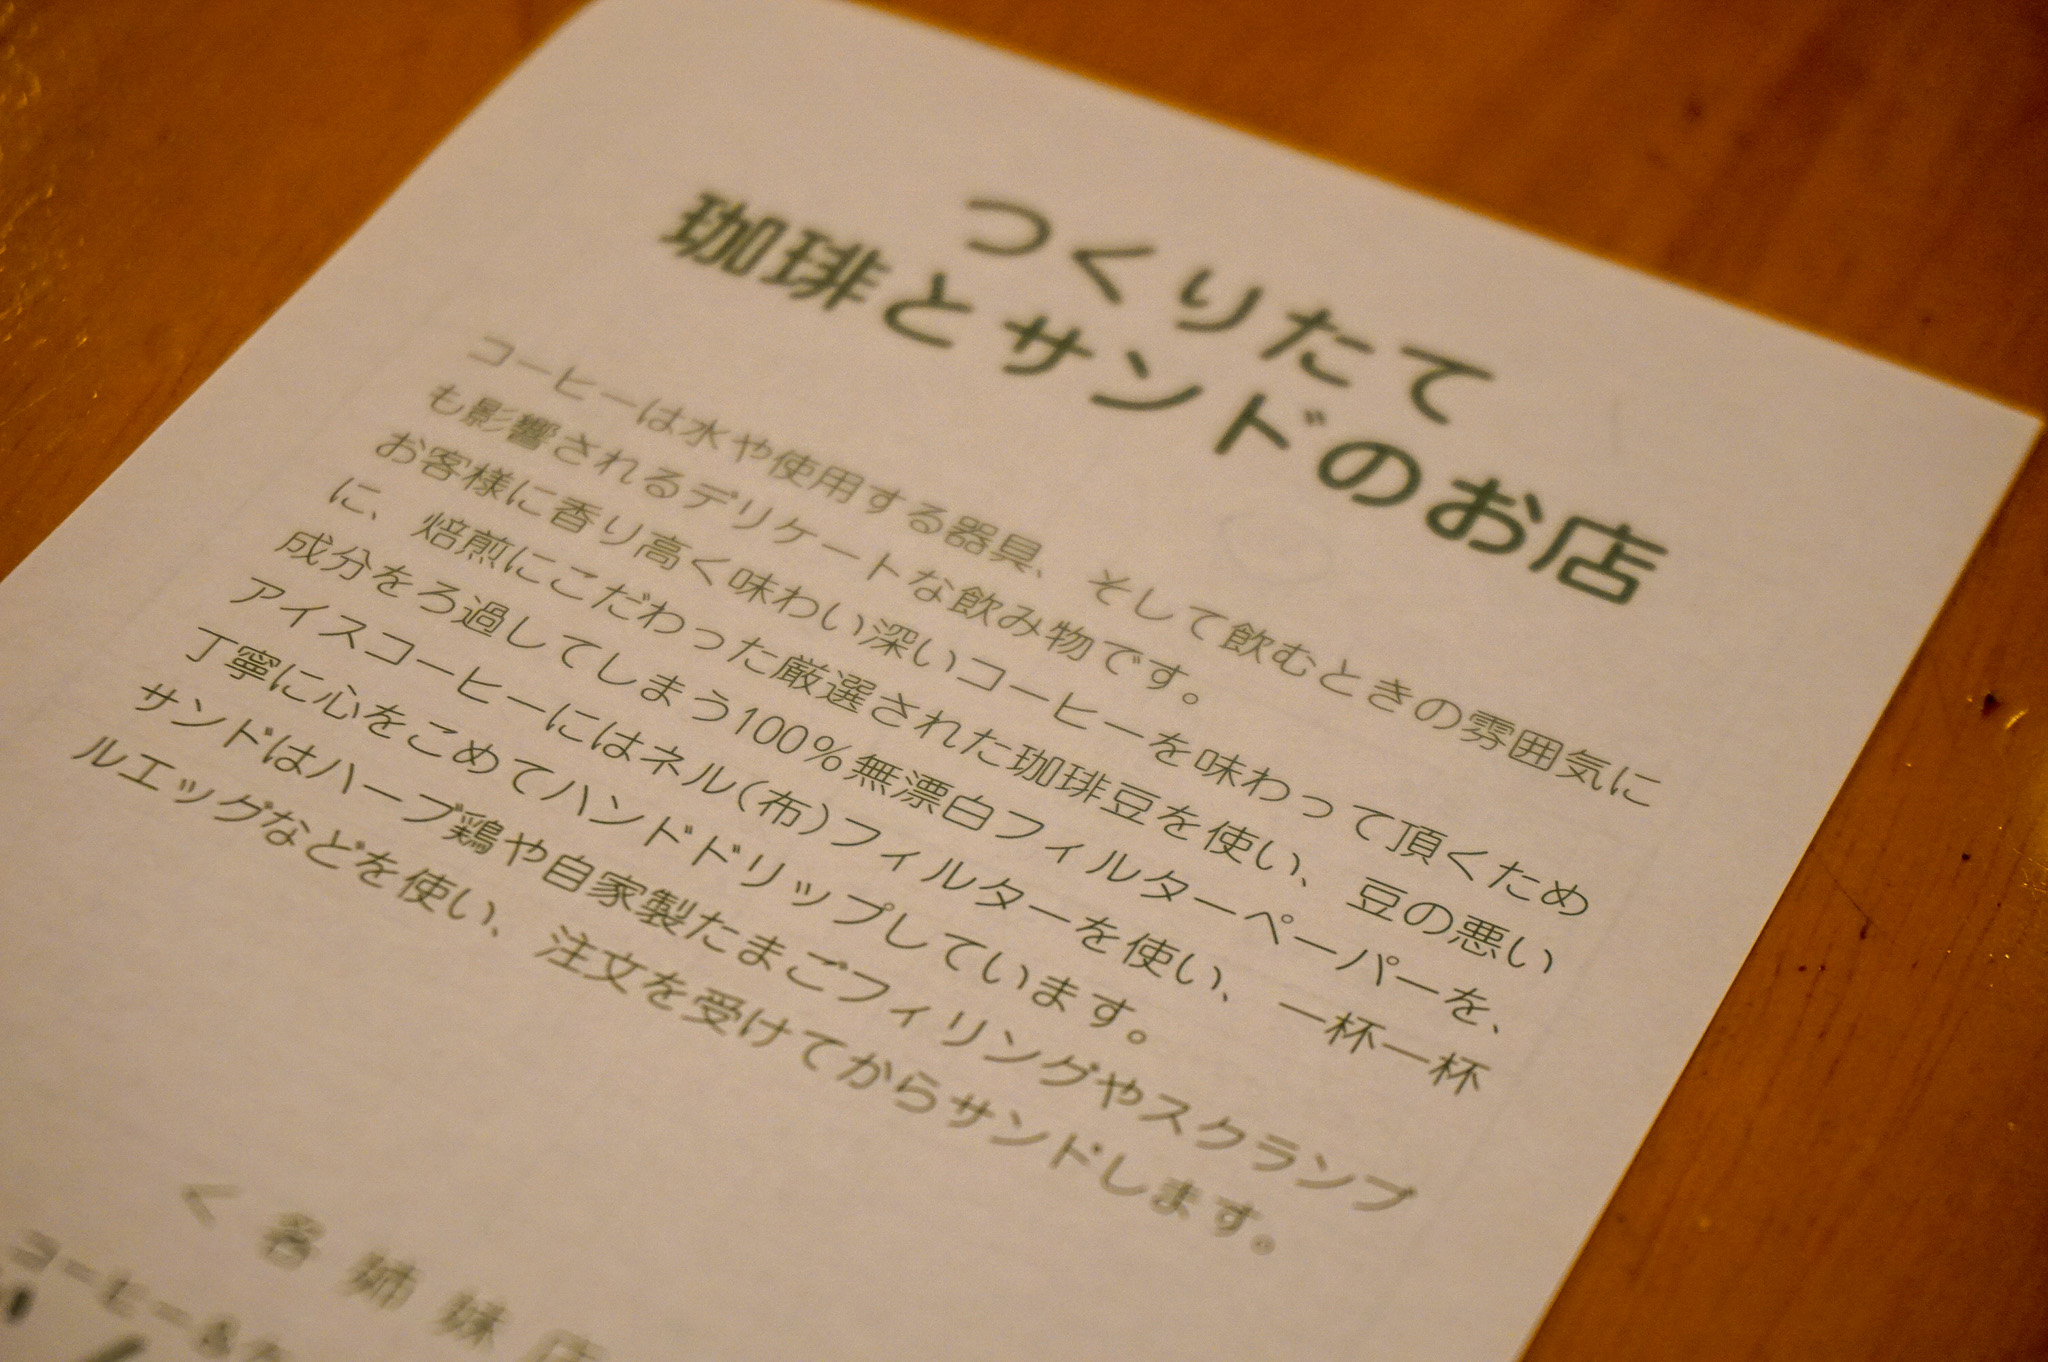 つくりたて
珈琲とサンドのお店
コーヒーは水や使用する器具、そして飲むときの雰囲気に
も影響されるデリケートな飲み物です。
お客様に香り高く味わい深いコーヒーを味わって頂くため
に、焙煎にこだわった厳選された珈琲豆を使い、豆の悪い
成分をろ過してしまう100%無漂白フィルターペーパーを、
アイスコーヒーにはネル(布)フィルターを使い、一杯一杯
丁寧に心をこめてハンドドリップしています。
サンドはハーブ鶏や自家製たまごフィリングやスクランブ
ルエッグなどを使い、注文を受けてからサンドします。
<各姉妹店
コーヒー&